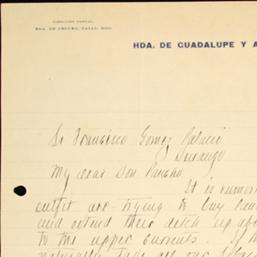 DIRECCION POSTAL
HDA. DE GUADALUPE Y A
Sr Francisco Gomez Palacio
Durango
My dear Don Pancho
It is rumor
outfit are trying to buy lan
and extend their ditch up abo
to the upper currents. If th
naturally take all our